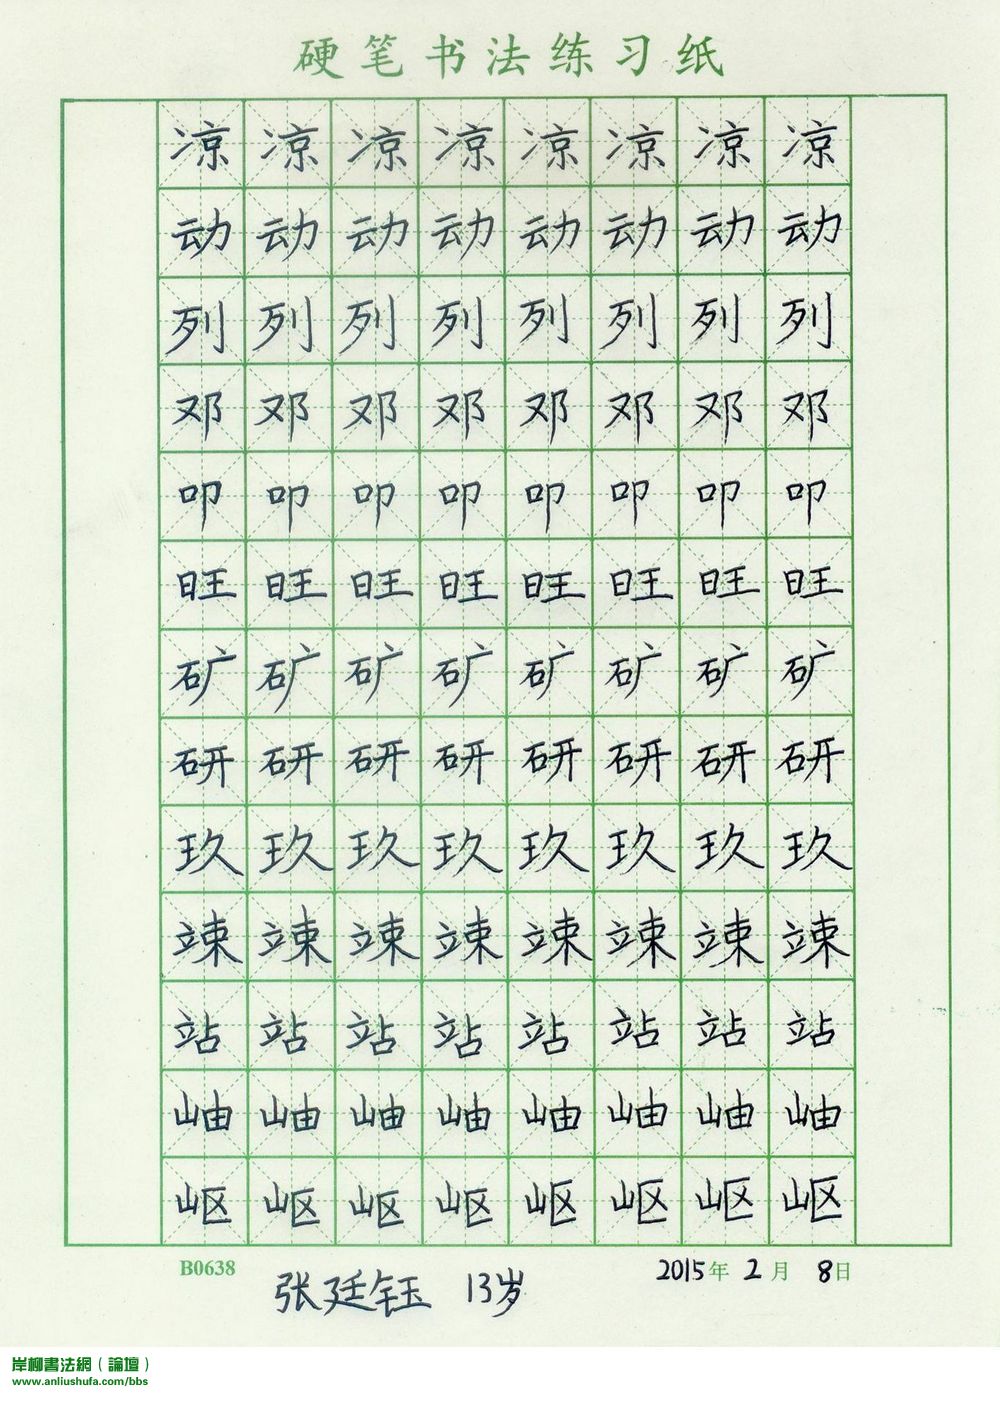 硬笔书法练习纸
凉凉凉凉凉凉凉凉
动动动动动动动动
列列列列列列列列
邓邓邓邓邓邓邓邓
叩叩叩叩叩叩叩叩
旺旺旺旺旺旺旺旺
矿矿矿矿矿矿矿矿
研研研研研研研研
玖玖玖玖玖玖玖玖
竦竦竦竦竦竦竦竦
站站站站站站站站
岫岫岫岫岫岫岫岫
岖岖岖岖岖岖岖岖
B0638 张廷钰 13岁 2015年2月8日
岸柳書法網（論壇）
www.anliushufa.com/bbs